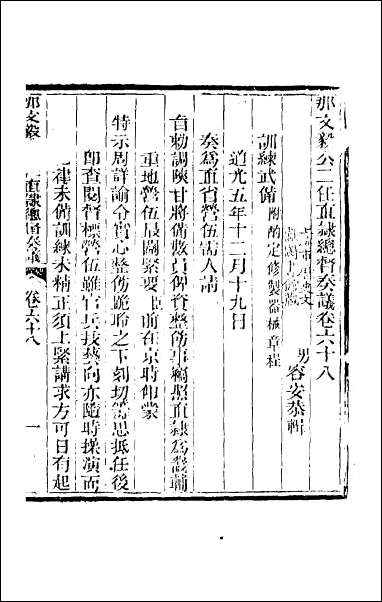 那文毅公二任直隸總督奏議卷六十八
男 容安恭輯
訓練武備 附酌定修製器械章程
道光五年十二月十九日
奏為直省營伍需人請
旨勅調陝甘將備數員俾資整飭事竊照直隸為畿輔
重地營伍最關緊要 前在京時仰蒙
特示周詳諭令實心整飭跪聆之下刻切籌思抵任後
即查閱督標營伍雖官兵技藝向亦隨時操演而
律未備訓練未精正須上緊講求方可日有起
那文毅 直隸總督奏議 卷六十八 一